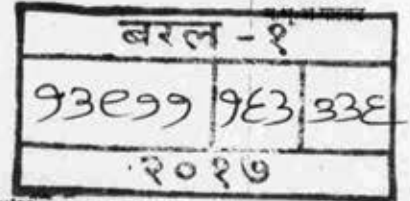 बरल - १
१३९११ १६३ ३३६
२०१७